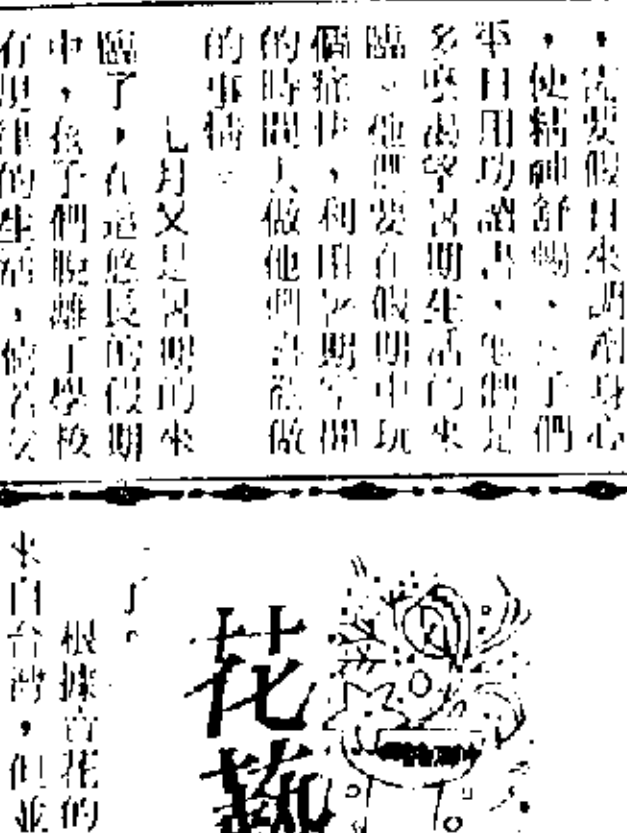 ，需要假日來調劑身心
，使精神舒暢、　子們
平日用功讀書，　他們是
多麼渴望暑期生活的來
臨。他們要在假期中玩
個痛快，利用暑期空閒
的時間　，做他們喜歡做
的事情。
七月又是暑期的來
臨了，在這悠長的假期
中，孩子們脫離了學校
有規律的生活，倘若父
花藝
了。
根據　花的
來自台灣，但並